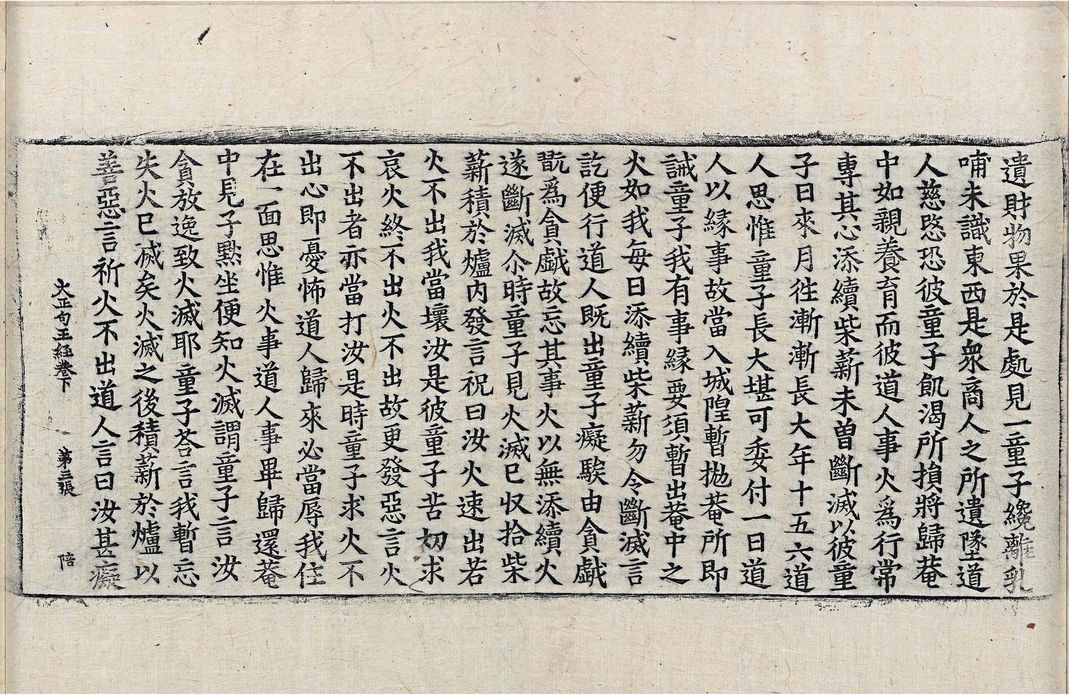 遺財物果於是處見一童子纔離乳
哺未識東西是衆商人之所遺墜道
人慈愍恐彼童子飢渴所損將歸菴
中如親養育而彼道人事火爲行常
專其心添續柴薪未曽斷滅以彼童
子日來月徃漸漸長大年十五六道
人思惟童子長大堪可委付一日道
人以縁事故當入城隍暫抛菴所即
誡童子我有事縁要須暫出菴中之
火如我每日添續柴薪勿令斷滅言
訖便行道人既出童子癡騃由貪戱
翫爲貪戱故忘其事火以無添續火
遂斷滅尒時童子見火滅已収拾柴
薪積於爐内發言祝曰汝火速出若
火不出我當壞汝是彼童子苦切求
哀火終不出火不出故更發惡言火
不出者亦當打汝是時童子求火不
出心即憂怖道人歸來必當辱我住
在一面思惟火事道人事畢歸還菴
中見子黙坐便知火滅謂童子言汝
貪放逸致火滅耶童子荅言我暫忘
失火已滅矣火滅之後積薪於爐以
善惡言祈火不出道人言曰汝甚癡
大正句王經卷下 第三張 陪